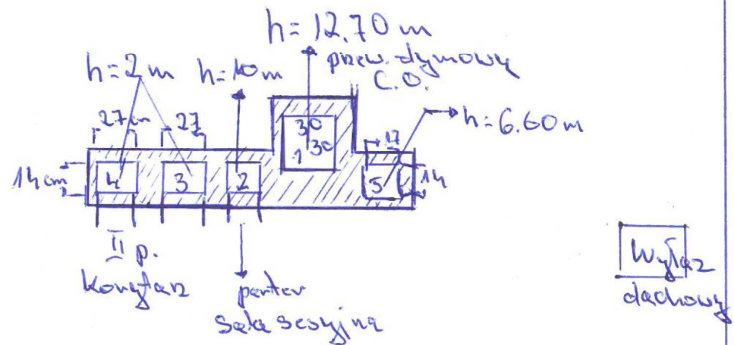 h=12.70 m
przew. dymowy
C.O.
h=2m
h=10m
h=6.60m
27cm
27
30
1
30
17
14cm
4
3
2
5
14
II p.
Korytarz
parter
Sala sesyjna
Wyłaz
dachowy